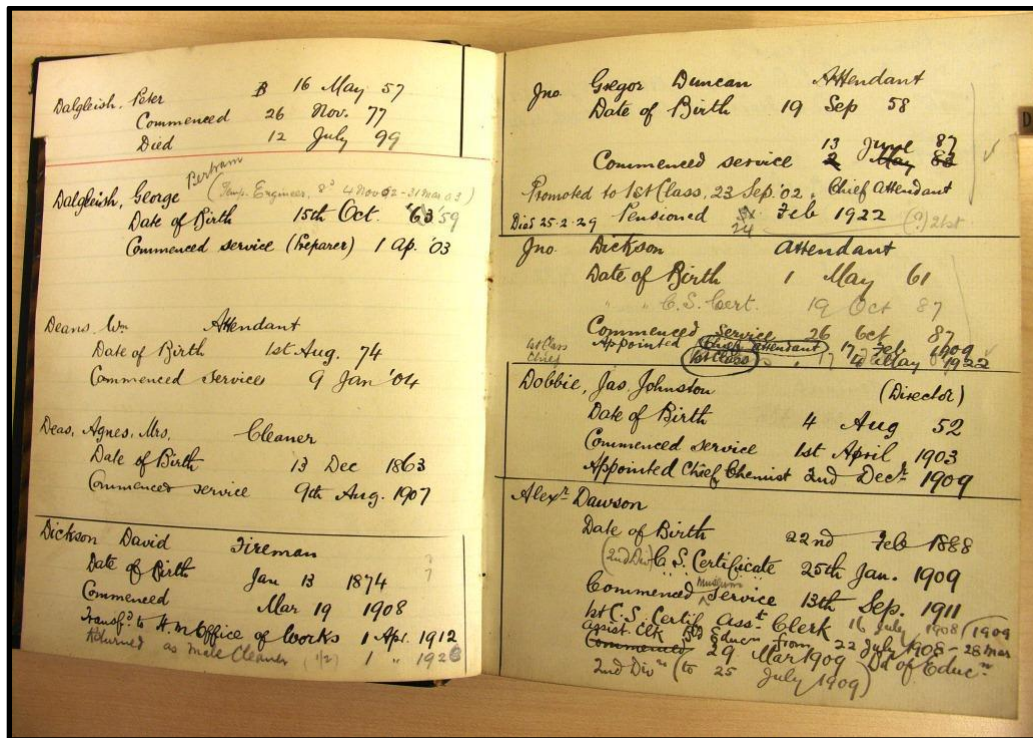 Dalgleish, Peter B 16 May 57
Commenced 26 Nov. 77
Died 12 July 99
Dalgleish, George Bertram
(Temp. Engineer, 8d 4 Nov 02 - 31 Mar 03)
Date of Birth 15th Oct. '63 '59
Commenced service (Preparer) 1 Ap. '03
Deans, Wm Attendant
Date of Birth 1st Aug. 74
Commenced services 9 Jan '04
Deas, Agnes, Mrs. Cleaner
Date of Birth 13 Dec 1863
Commenced service 9th Aug. 1907
Dickson David Fireman
Date of Birth Jan 13 1874 ?
Commenced Mar 19 1908 ?
Transfd to H.M. Office of Works 1 Apr. 1912
Returned as Male Cleaner (1/2) 1 " 1926
Jno. Gregor Duncan Attendant
Date of Birth 19 Sep 58
13 June 87
Commenced service 2 May 83
Promoted to 1st Class, 23 Sep. '02. Chief Attendant
Died 25-2-29 Pensioned 24 Feb 1922 (?) 21st
D
Jno. Dickson Attendant
Date of Birth 1 May 61
" " C.S. Cert. 19 Oct 87
Commenced Service 26 Oct 87
1st Class Appointed Chief Attendant 17 Feb 1909
Chief 1st Class " May 1922
Dobbie, Jas. Johnston (Director)
Date of Birth 4 Aug 52
Commenced service 1st April, 1903
Appointed Chief Chemist 2nd Decr. 1909
Alexr Dawson
Date of Birth 22nd Feb 1888
(2nd Div) C.S. Certificate 25th Jan. 1909
Commenced Museum Service 13th Sep. 1911
1st C.S. Certif Asst Clerk 16 July 1908 (1909
Assist. Clk Bd Educn from 22 July 1908 - 28 Mar
Commenced 29 Mar 1909 Bd of Educn
2nd Divn (to 25 July 1909)